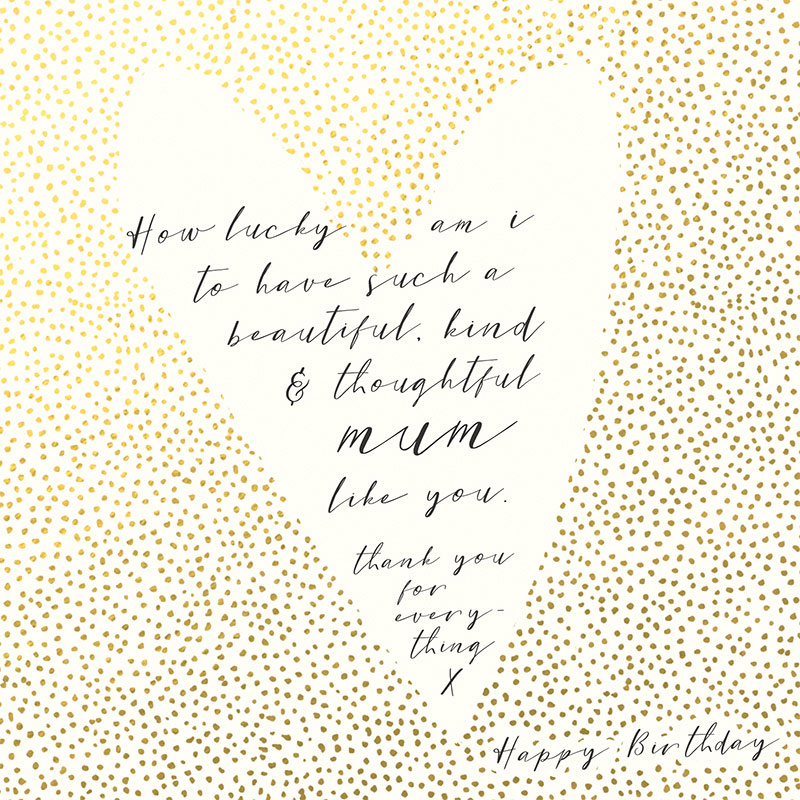 How lucky am i
to have such a
beautiful, kind
& thoughtful
mum
like you.
thank you
for
every-
thing
X
Happy Birthday